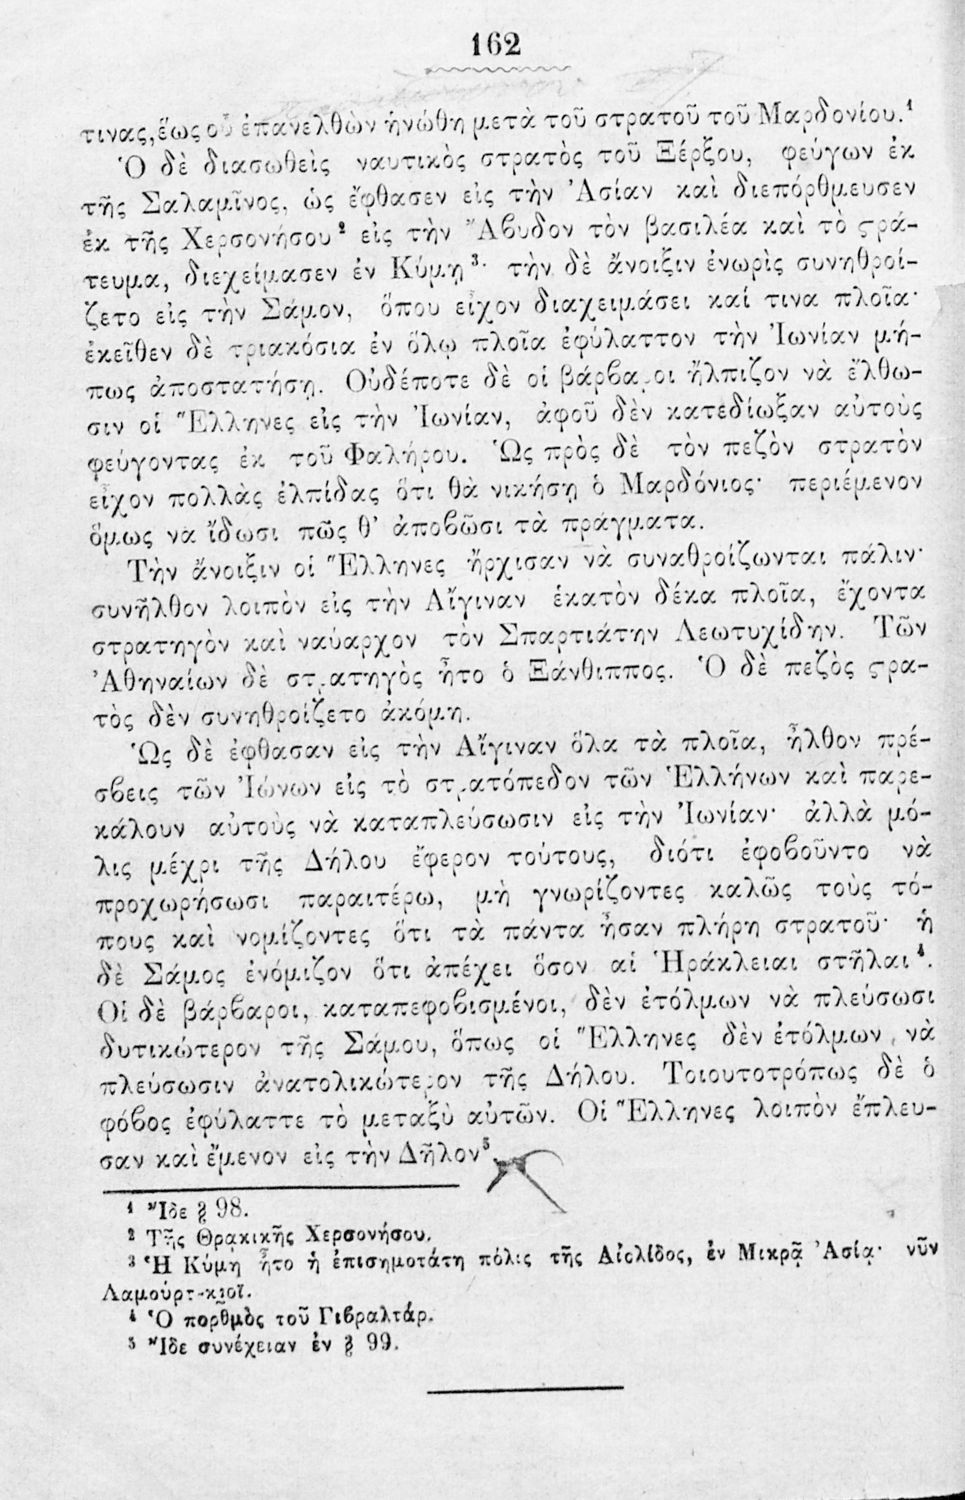 162
τινας, ἕως οὗ ἐπανελθὼν ἡνώθη μετὰ τοῦ στρατοῦ τοῦ Μαρδονίου.¹
Ὁ δὲ διασωθεὶς ναυτικὸς στρατὸς τοῦ Ξέρξου, φεύγων ἐκ
τῆς Σαλαμῖνος, ὡς ἔφθασεν εἰς τὴν Ἀσίαν καὶ διεπόρθμευσεν
ἐκ τῆς Χερσονήσου² εἰς τὴν Ἄβυδον τὸν βασιλέα καὶ τὸ ϛρά-
τευμα, διεχείμασεν ἐν Κύμῃ³· τὴν δὲ ἄνοιξιν ἐνωρὶς συνηθροί-
ζετο εἰς τὴν Σάμον, ὅπου εἶχον διαχειμάσει καί τινα πλοῖα·
ἐκεῖθεν δὲ τριακόσια ἐν ὅλῳ πλοῖα ἐφύλαττον τὴν Ἰωνίαν μή-
πως ἀποστατήσῃ. Οὐδέποτε δὲ οἱ βάρβαροι ἤλπιζον νὰ ἔλθω-
σιν οἱ Ἕλληνες εἰς τὴν Ἰωνίαν, ἀφοῦ δὲν κατεδίωξαν αὐτοὺς
φεύγοντας ἐκ τοῦ Φαλήρου. Ὡς πρὸς δὲ τὸν πεζὸν στρατὸν
εἶχον πολλὰς ἐλπίδας ὅτι θὰ νικήσῃ ὁ Μαρδόνιος· περιέμενον
ὅμως νὰ ἴδωσι πῶς θ’ ἀποβῶσι τὰ πράγματα.
Τὴν ἄνοιξιν οἱ Ἕλληνες ἤρχισαν νὰ συναθροίζωνται πάλιν·
συνῆλθον λοιπὸν εἰς τὴν Αἴγιναν ἑκατὸν δέκα πλοῖα, ἔχοντα
στρατηγὸν καὶ ναύαρχον τὸν Σπαρτιάτην Λεωτυχίδην. Τῶν
Ἀθηναίων δὲ στρατηγὸς ἦτο ὁ Ξάνθιππος. Ὁ δὲ πεζὸς ϛρα-
τὸς δὲν συνηθροίζετο ἀκόμη.
Ὡς δὲ ἔφθασαν εἰς τὴν Αἴγιναν ὅλα τὰ πλοῖα, ἦλθον πρέ-
σβεις τῶν Ἰώνων εἰς τὸ στρατόπεδον τῶν Ἑλλήνων καὶ παρε-
κάλουν αὐτοὺς νὰ καταπλεύσωσιν εἰς τὴν Ἰωνίαν· ἀλλὰ μό-
λις μέχρι τῆς Δήλου ἔφερον τούτους, διότι ἐφοβοῦντο νὰ
προχωρήσωσι παραιτέρω, μὴ γνωρίζοντες καλῶς τοὺς τό-
πους καὶ νομίζοντες ὅτι τὰ πάντα ἦσαν πλήρη στρατοῦ· ἡ
δὲ Σάμος ἐνόμιζον ὅτι ἀπέχει ὅσον αἱ Ἡράκλειαι στῆλαι⁴.
Οἱ δὲ βάρβαροι, καταπεφοβισμένοι, δὲν ἐτόλμων νὰ πλεύσωσι
δυτικώτερον τῆς Σάμου, ὅπως οἱ Ἕλληνες δὲν ἐτόλμων νὰ
πλεύσωσιν ἀνατολικώτερον τῆς Δήλου. Τοιουτοτρόπως δὲ ὁ
φόβος ἐφύλαττε τὸ μεταξὺ αὐτῶν. Οἱ Ἕλληνες λοιπὸν ἔπλευ-
σαν καὶ ἔμενον εἰς τὴν Δῆλον⁵
¹ Ἴδε § 98.
² Τῆς Θρᾳκικῆς Χερσονήσου.
³ Ἡ Κύμη ἦτο ἡ ἐπισημοτάτη πόλις τῆς Αἰολίδος, ἐν Μικρᾷ Ἀσίᾳ· νῦν
Λαμούρτ-κιοϊ.
⁴ Ὁ πορθμὸς τοῦ Γιβραλτάρ.
⁵ Ἴδε συνέχειαν ἐν § 99.